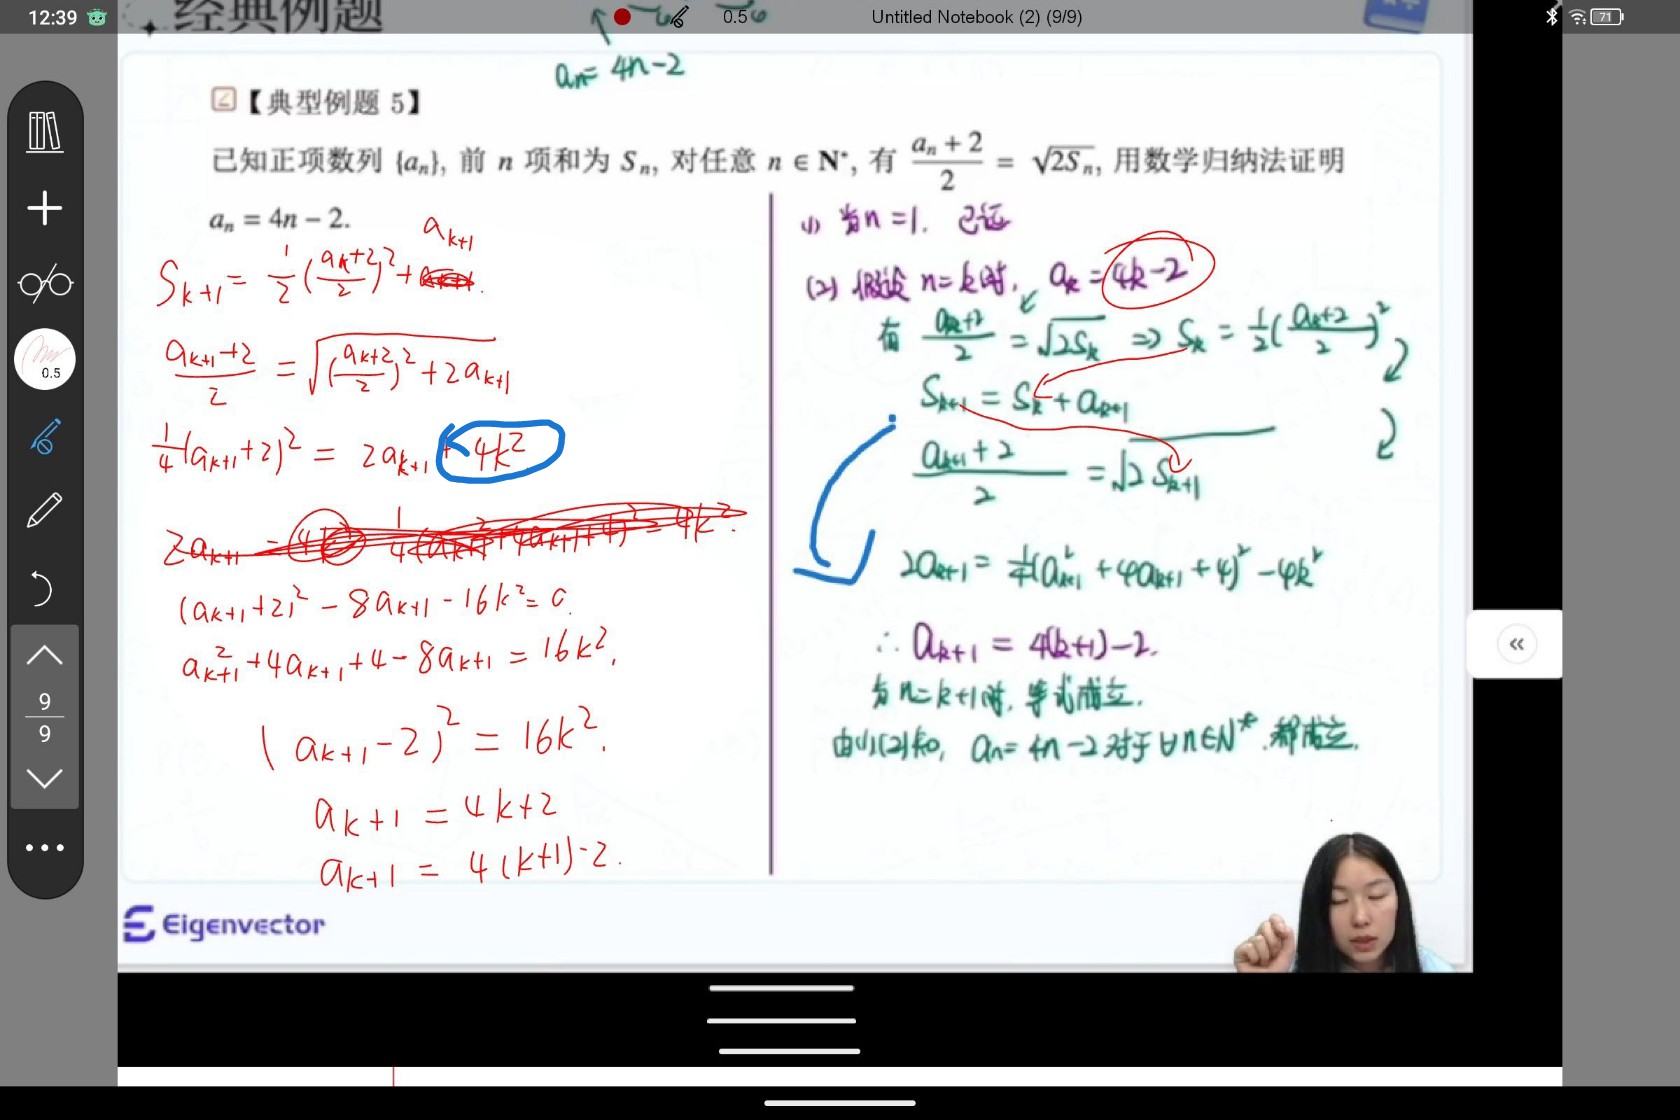 12:39
0.5
Untitled Notebook (2) (9/9)
71
经典例题
aₙ = 4n-2
【典型例题 5】
已知正项数列 {aₙ}, 前 n 项和为 Sₙ, 对任意 n ∈ N*, 有 (aₙ + 2)/2 = √(2Sₙ), 用数学归纳法证明
aₙ = 4n − 2.
a_{k+1}
S_{k+1} = 1/2 ((a_k+2)/2)² +
(a_{k+1}+2)/2 = √(((a_k+2)/2)² + 2a_{k+1})
1/4 (a_{k+1}+2)² = 2a_{k+1} + 4k²
2a_{k+1} = 4k² 1/4 (a_{k+1}² + 4a_{k+1} + 4)² = 4k².
(a_{k+1}+2)² - 8a_{k+1} - 16k² = 0.
a_{k+1}² + 4a_{k+1} + 4 - 8a_{k+1} = 16k².
(a_{k+1} - 2)² = 16k².
a_{k+1} = 4k+2
a_{k+1} = 4(k+1)-2.
(1) 当n=1. 已证
(2) 假设 n=k时, a_k = 4k-2
有 (a_k+2)/2 = √(2S_k) ⇒ S_k = 1/2 ((a_k+2)/2)²
S_{k+1} = S_k + a_{k+1}
(a_{k+1}+2)/2 = √(2S_{k+1})
2a_{k+1} = 1/4 (a_{k+1}² + 4a_{k+1} + 4)² - 4k²
∴ a_{k+1} = 4(k+1)-2.
当 n=k+1时, 等式成立.
由(1)(2)知, aₙ = 4n-2 对于 ∀n∈N*. 都成立.
0.5
9
9
Eigenvector